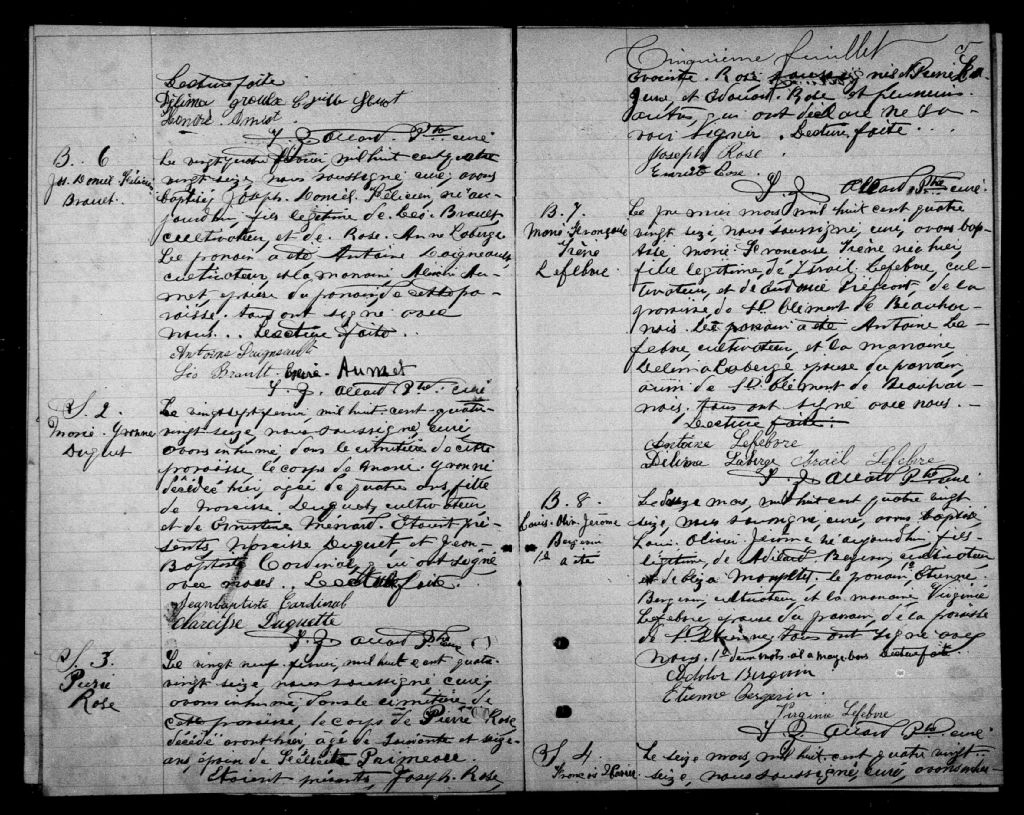 Lecture faite
Délima groulx
J. J. Allard Ptre curé
B.. 6
Jos. Doniel Félicien
Brauet.
Le vingt quatre février mil huit cent quatre
vingt seize, nous soussigné, curé, avons
baptisé, Joseph. Doniel. Félicien, né au-
jourdhui, fils légitime de Léo. Brauet
cultivateur, et de Rose. Anna Laberge
Le parrain a été Antoine Daigneault
cultivateur, et la marraine
met, épouse du parrain de cette pa-
roisse. tous ont signé avec
nous... Lecture faite..
Antoine Daigneault
Léo Brault. Aumet
J. J. Allard Ptre. curé
S. 2.
Marie. Yvonne
Duguet
Le vingt sept février mil huit cent quatre
vingt seize, nous soussigné, curé,
avons inhumé, dans le cimetière de cette
paroisse, le corps de Marie. Yvonne
décédée hier, agée de quatre ans, fille
de Narcisse. Duguet, cultivateur,
et de Ernestine Menard. Etaient pré-
sents, Narcisse Duguet, et Jean-
Baptiste Cardinal, qui ont signé
avec nous.. Lecture faite.
Jeanbaptiste Cardinal
Narcisse Duquette
J. J. Allard Ptre curé
S. 3.
Pierre
Rose
Le vingt neuf février, mil huit cent quatre
vingt seize, nous soussigné curé,
avons inhumé, dans le cimetière de
cette paroisse, le corps de Pierre Rose
décédé avant hier, agé de soixante et seize
ans, époux de Félicité Parmeree.
Etaient présents, Joseph. Rose,
Cinquième feuillet
5
Rose Pierre
et Edouard. Rose et plusieurs
autres, qui ont déclaré ne sa-
voir signer. Lecture faite...
Joseph Rose.
Rose.
J. J. Allard Ptre curé.
B. 7.
Marie Françoise
Irène
Lefebvre
Le premier mars mil huit cent quatre
vingt seize nous soussigné, curé, avons bap-
tisé Marie Francoise Irène née hier,
fille légitime, de Israil. Lefebvre, cul-
tivateur, et de de la
paroisse de St. Clément de Beauhar-
nois. Le parrain a été Antoine Le-
febvre cultivateur, et la marraine
Delima Laberge épouse du parrain,
aussi de St. Clément de Beauhar-
nois. tous ont signé avec nous.
Lecture faite.
Antoine Lefebvre
Délima Laberge Israël Lefebvre
J. J. Allard Ptre curé
B. 8.
Louis. Oliv. Jerome
Bergevin
acte
Le douze mars, mil huit cent quatre vingt
seize, nous soussigné, curé, avons baptisé
Louis. Jérome né aujourdhui, fils
légitime, de Adélard. Bergevin, cultivateur
et de Eliza Monpetit. Le parrain, Etienne
Bergevin, cultivateur, et la marraine, Virginie
Lefebvre, épouse du parrain, de la paroisse
de St. Etienne, tous ont signé avec
nous. deux mots Lecture faite.
Bergevin
Etienne Bergevin.
Virginie Lefebvre
J. J. Allard Ptre curé
S. 4
François
Le seize mars, mil huit cent quatre vingt-
seize, nous soussigné, curé, avons inhu-